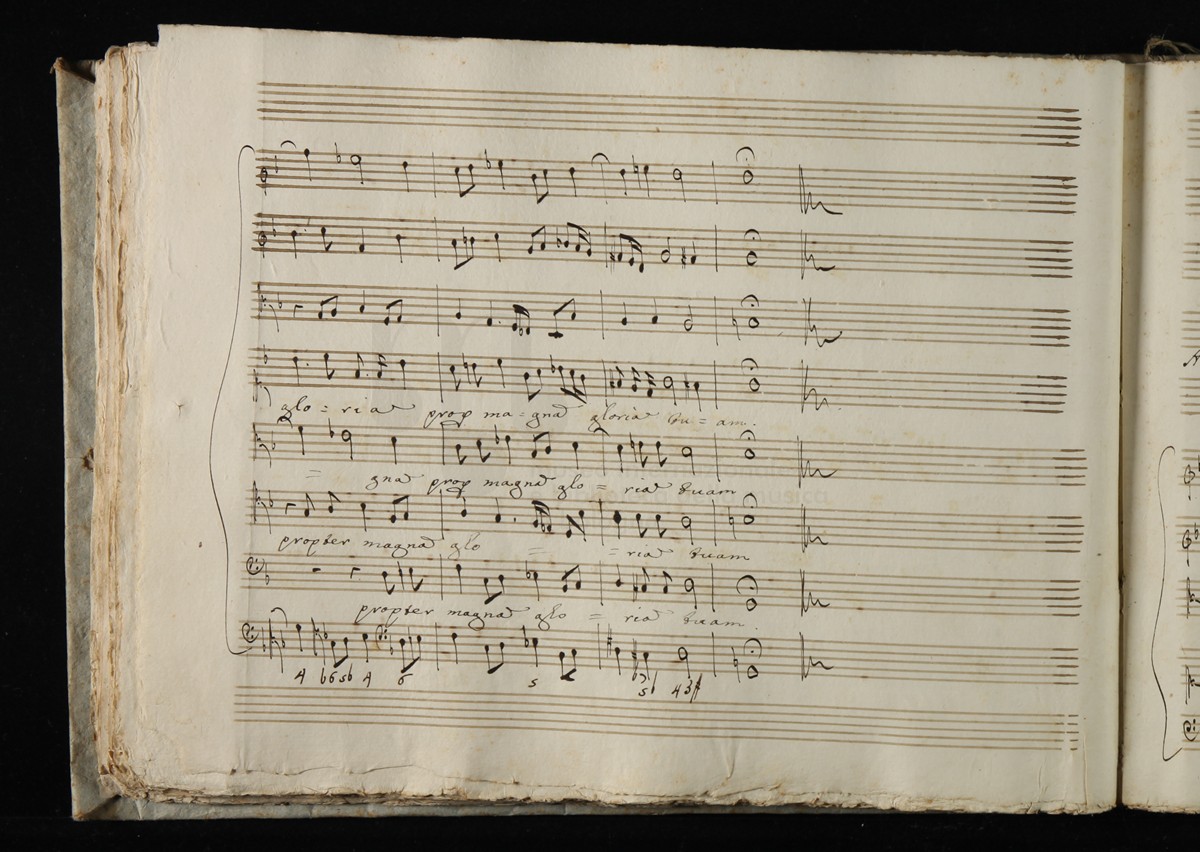 glo = ria prop ma = gna gloria tu = am.
= gna prop magna glo = ria tuam
propter magna glo = = ria tuam
propter magna glo = ria tuam.
4 b6 5b 4 6 5 5b 4 3#